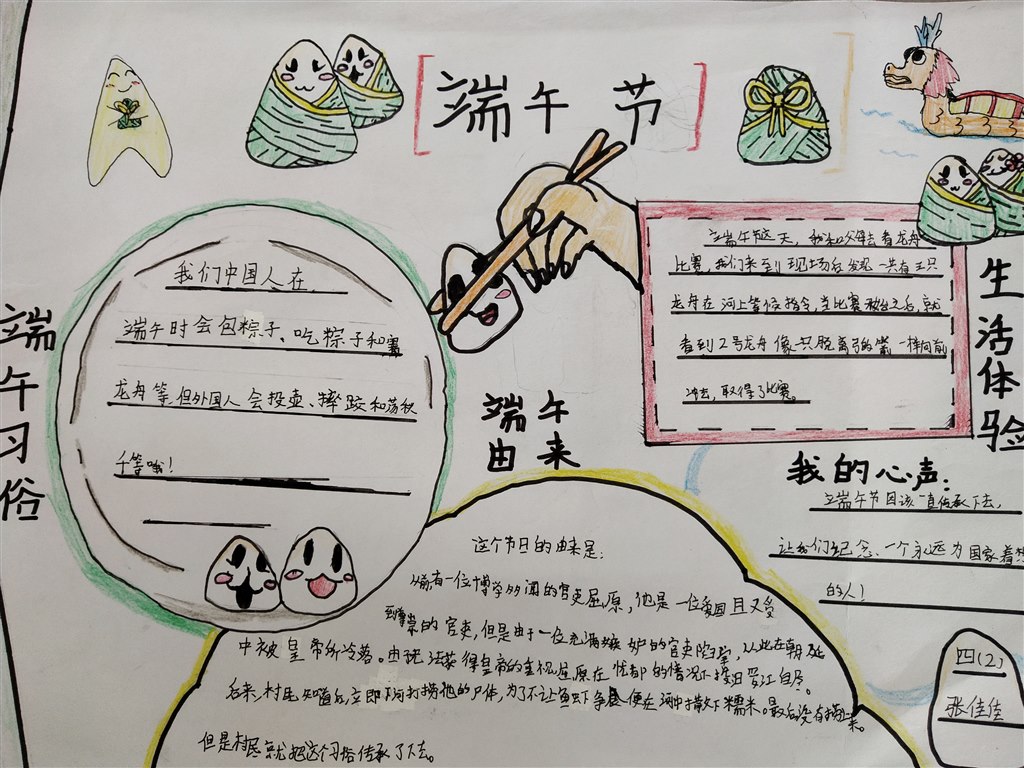 端午节
端午习俗
我们中国人在
端午时会包粽子、吃粽子和赛
龙舟等,但外国人会投壶、摔跤和荡秋
千等哦!
端午
由来
这个节日的由来是:
从前有一位博学多闻的官吏屈原,他是一位爱国且又受
到尊崇的官吏,但是由于一位充满嫉妒的官吏陷害,从此在朝廷
中被皇帝所冷落。由
得皇帝的
屈原在
的情况下
江自尽。
后来,村民知道后,立即下河打捞他的尸体,为了不让鱼虾争
便在河中撒下糯米。最后没有捞
来。
但是村民就把这个习俗传承了下去。
生活体验
端午节这天,我和父母去看龙舟
比赛,我们来到现场后发现一共有三只
龙舟在河上等候指令,当比赛
之后,就
看到2号龙舟像一只脱离弓的箭一样向前
冲去,取得了比赛。
我的心声:
端午节因该一直传承下去,
让我们纪念一个永远为国家着想
的人!
四(2)
张佳佳